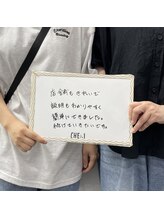 店舗もきれいで
説明もわかりやすく
簡単にできました。
続けていきたいです。